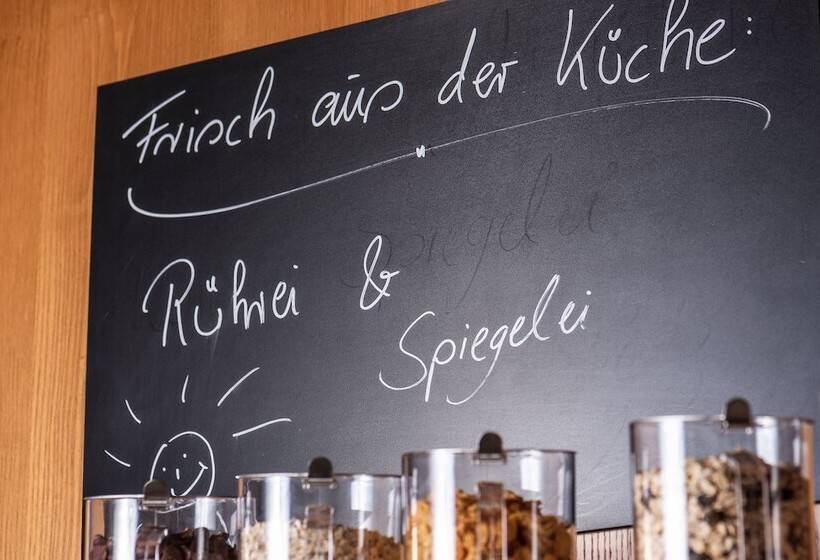 Frisch aus der Küche:
Spiegelei
Rührei &
Spiegelei